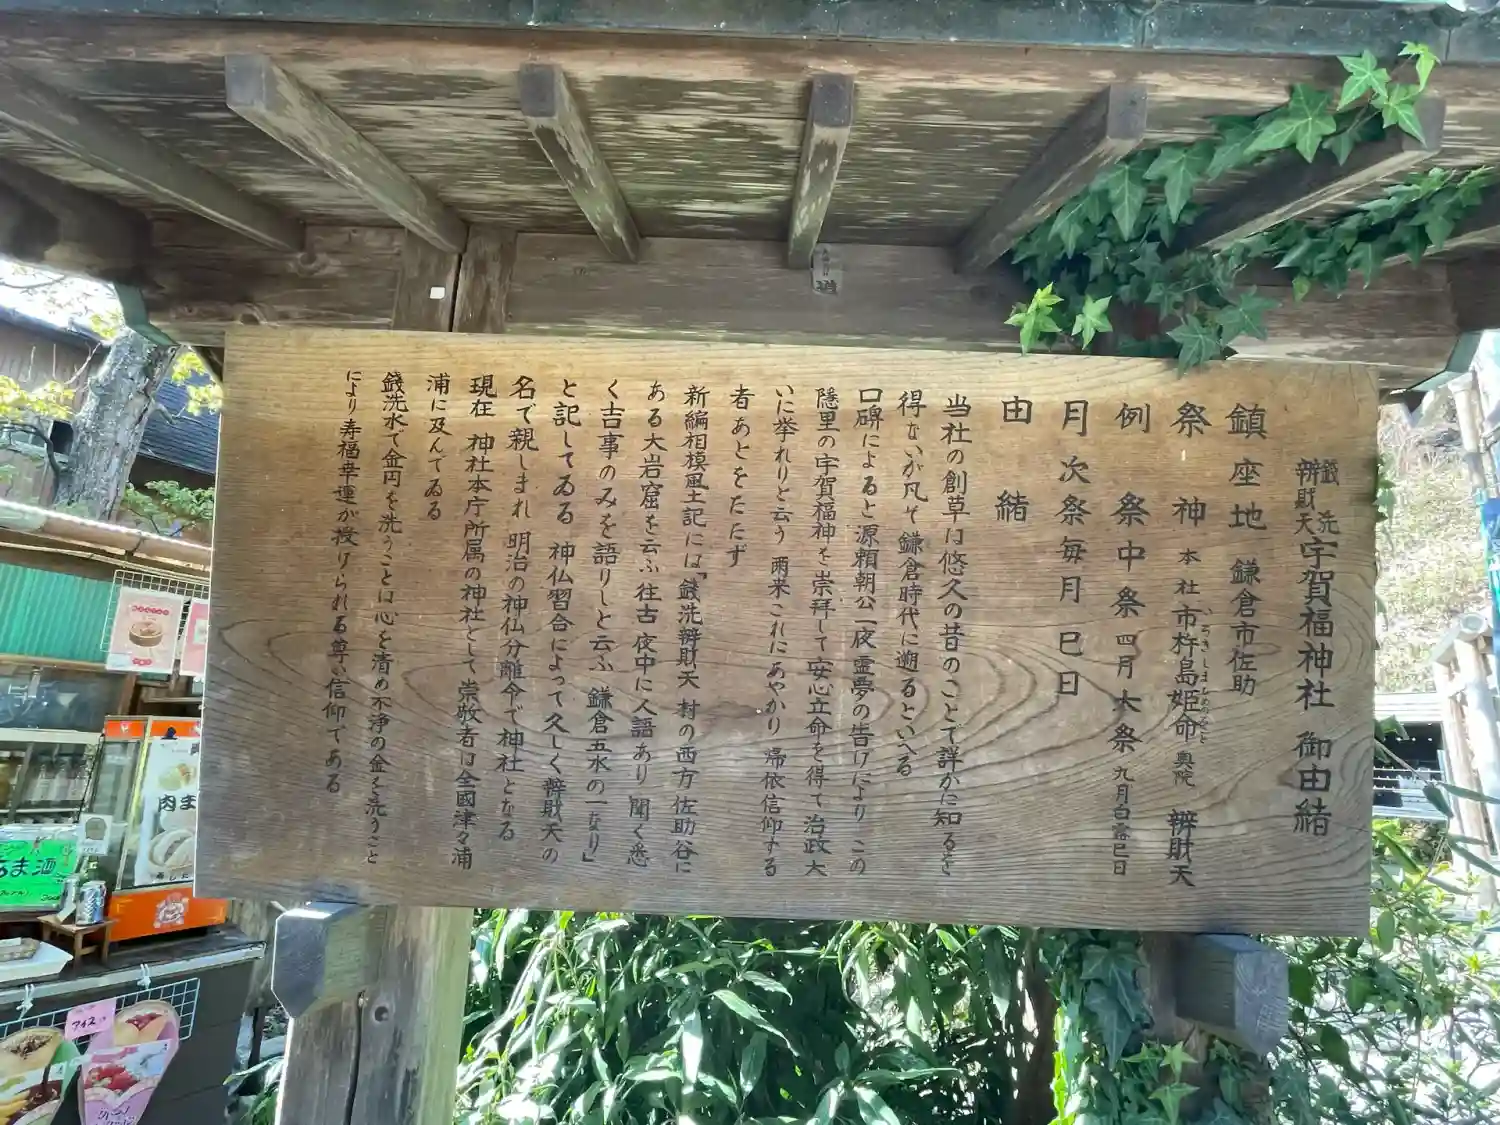 錢洗辨財天 宇賀福神社 御由緒
鎮座地 鎌倉市佐助
祭神 本社 市杵島姫命 奥院 辨財天
いちきしまひめのみこと
例祭 中祭 四月 大祭 九月白露巳日
月次祭 毎月 巳日
由緒
当社の創草は悠久の昔のことで詳かに知るを
得ないが凡そ鎌倉時代に遡るといへる
口碑によると源頼朝公「夜霊夢の告げによりこの
隠里の宇賀福神を崇拜して安心立命を得て治政大
いに挙れりと云う 爾来これにあやかり 帰依信仰する
者あとをたたず
新編相模風土記には「銭洗辨財天 村の西方 佐助谷に
ある大岩窟を云ふ 往古 夜中に人語あり 聞く悉
く吉事のみを語りしと云ふ 鎌倉五水の一なり」
と記してゐる 神仏習合によって久しく辨財天の
名で親しまれ 明治の神仏分離令で神社となる
現在 神社本庁所属の神社として崇敬者は全國津々浦
浦に及んでゐる
錢洗水で金円を洗うことは心を清め不浄の金を洗うこと
により寿福幸運が授けられる尊い信仰である
肉ま
ま酒
アイス